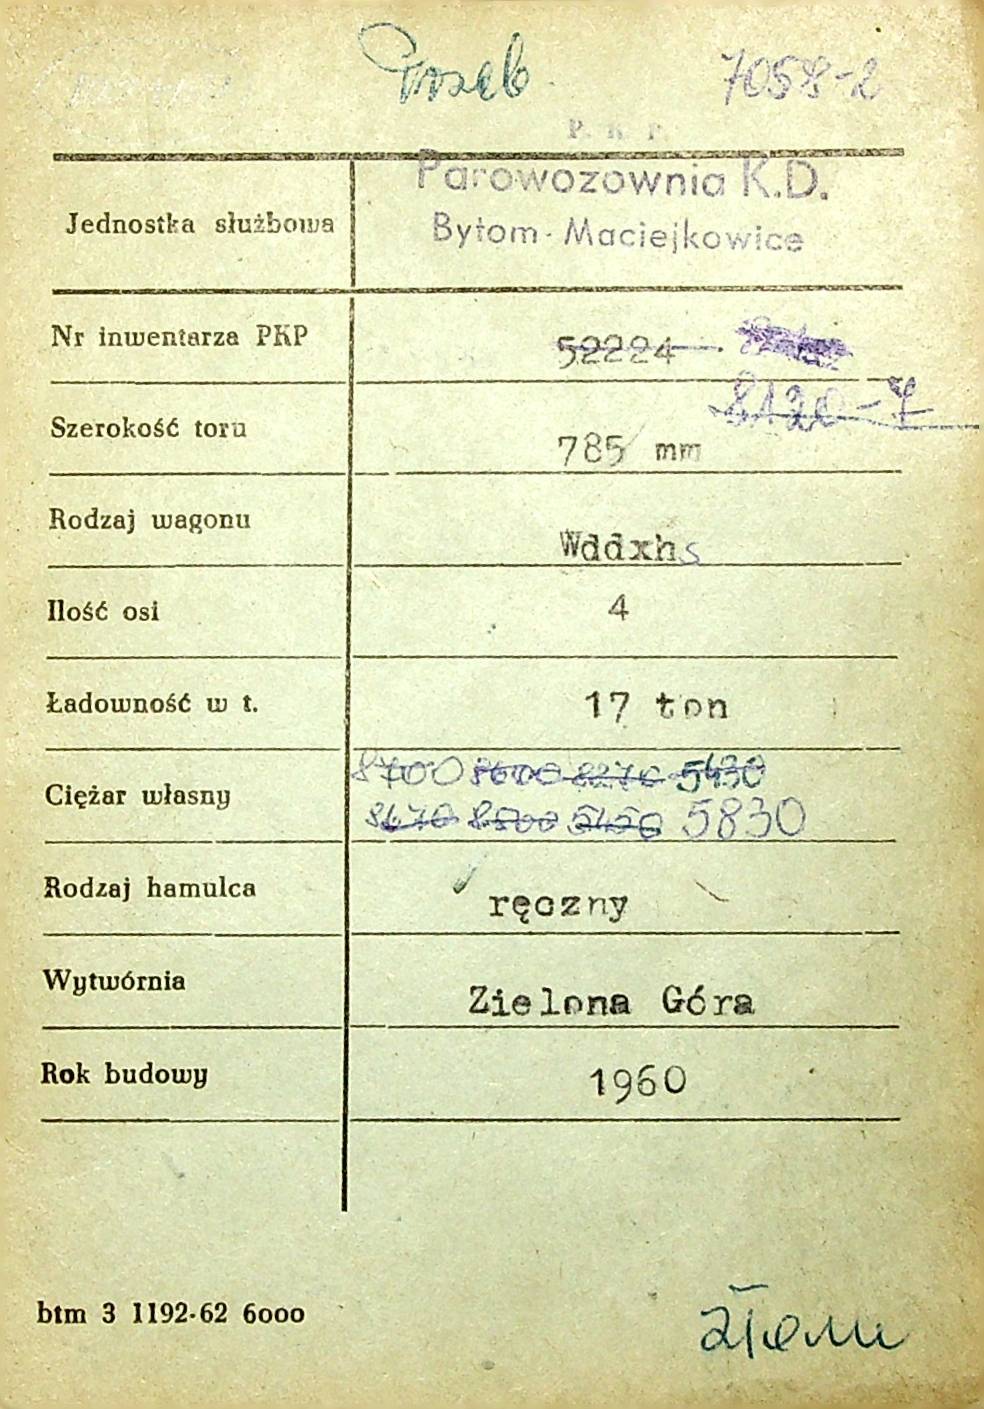 7058-2
P. K. P.
Parowozownia K.D.
Jednostka służbowa
Bytom-Maciejkowice
Nr inwentarza PKP 52224
8120-7
Szerokość toru 785 mm
Rodzaj wagonu Wddxhs
Ilość osi 4
Ładowność w t. 17 ton
8700 8600 8270 5430
Ciężar własny
8670 8500 5450 5830
Rodzaj hamulca ręczny
Wytwórnia Zielona Góra
Rok budowy 1960
btm 3 1192-62 6000